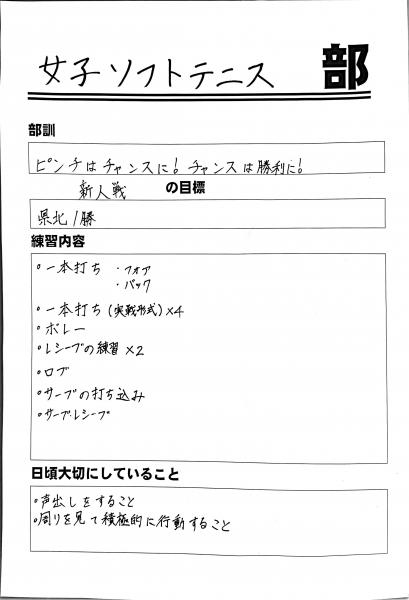 女子ソフトテニス 部
部訓
ピンチはチャンスに! チャンスは勝利に!
新人戦 の目標
県北1勝
練習内容
○一本打ち ・フォア
・バック
○一本打ち(実戦形式)×4
○ボレー
○レシーブの練習×2
○ロブ
○サーブの打ち込み
○サーブ・レシーブ
日頃大切にしていること
○声出しをすること
○周りを見て積極的に行動すること